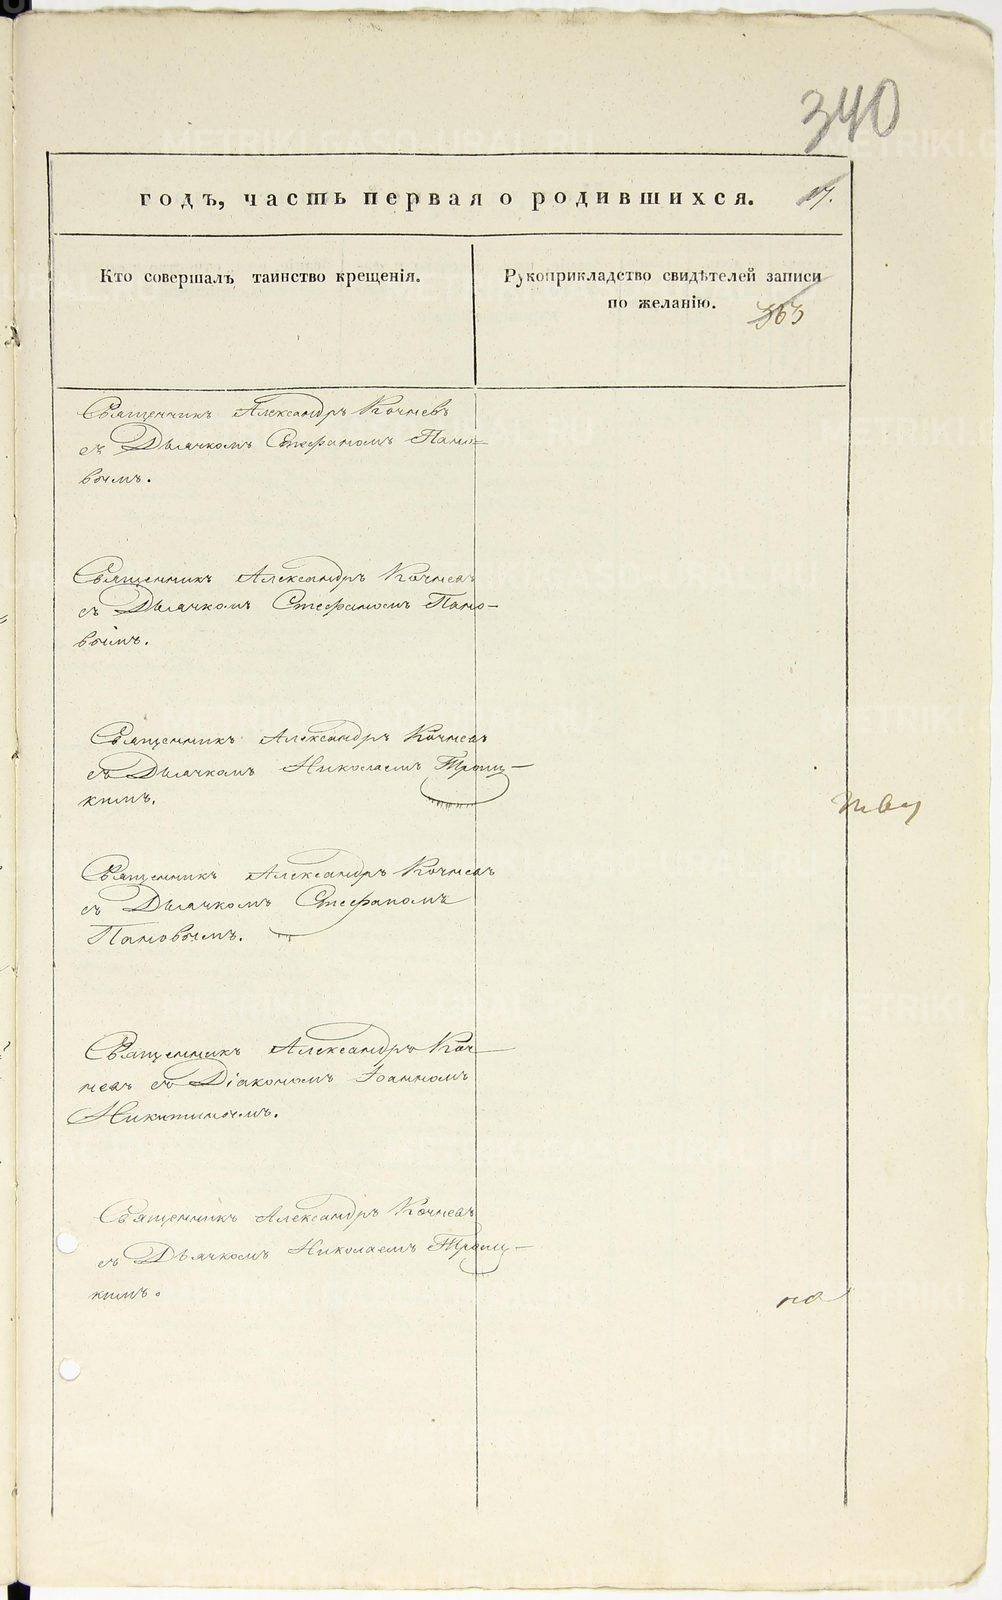 340
годъ, часть первая о родившихся. 17.
Кто совершалъ таинство крещенія.
Рукоприкладство свидѣтелей записи
по желанію.
363
Священникъ Александръ Кочневъ
съ Дьячкомъ Стефаномъ Пано-
вымъ.
Священникъ Александръ Кочневъ
съ Дьячкомъ Стефаномъ Пано-
вымъ.
Священникъ Александръ Кочневъ
съ Дьячкомъ Николаемъ Троиц-
кимъ.
Священникъ Александръ Кочневъ
съ Дьячкомъ Стефаномъ
Пановымъ.
Священникъ Александръ Коч-
невъ съ Діакономъ Іоанномъ
Никитинымъ.
Священникъ Александръ Кочневъ
съ Дьячкомъ Николаемъ Троиц-
кимъ.
METRIKI.GASO-URAL.RU